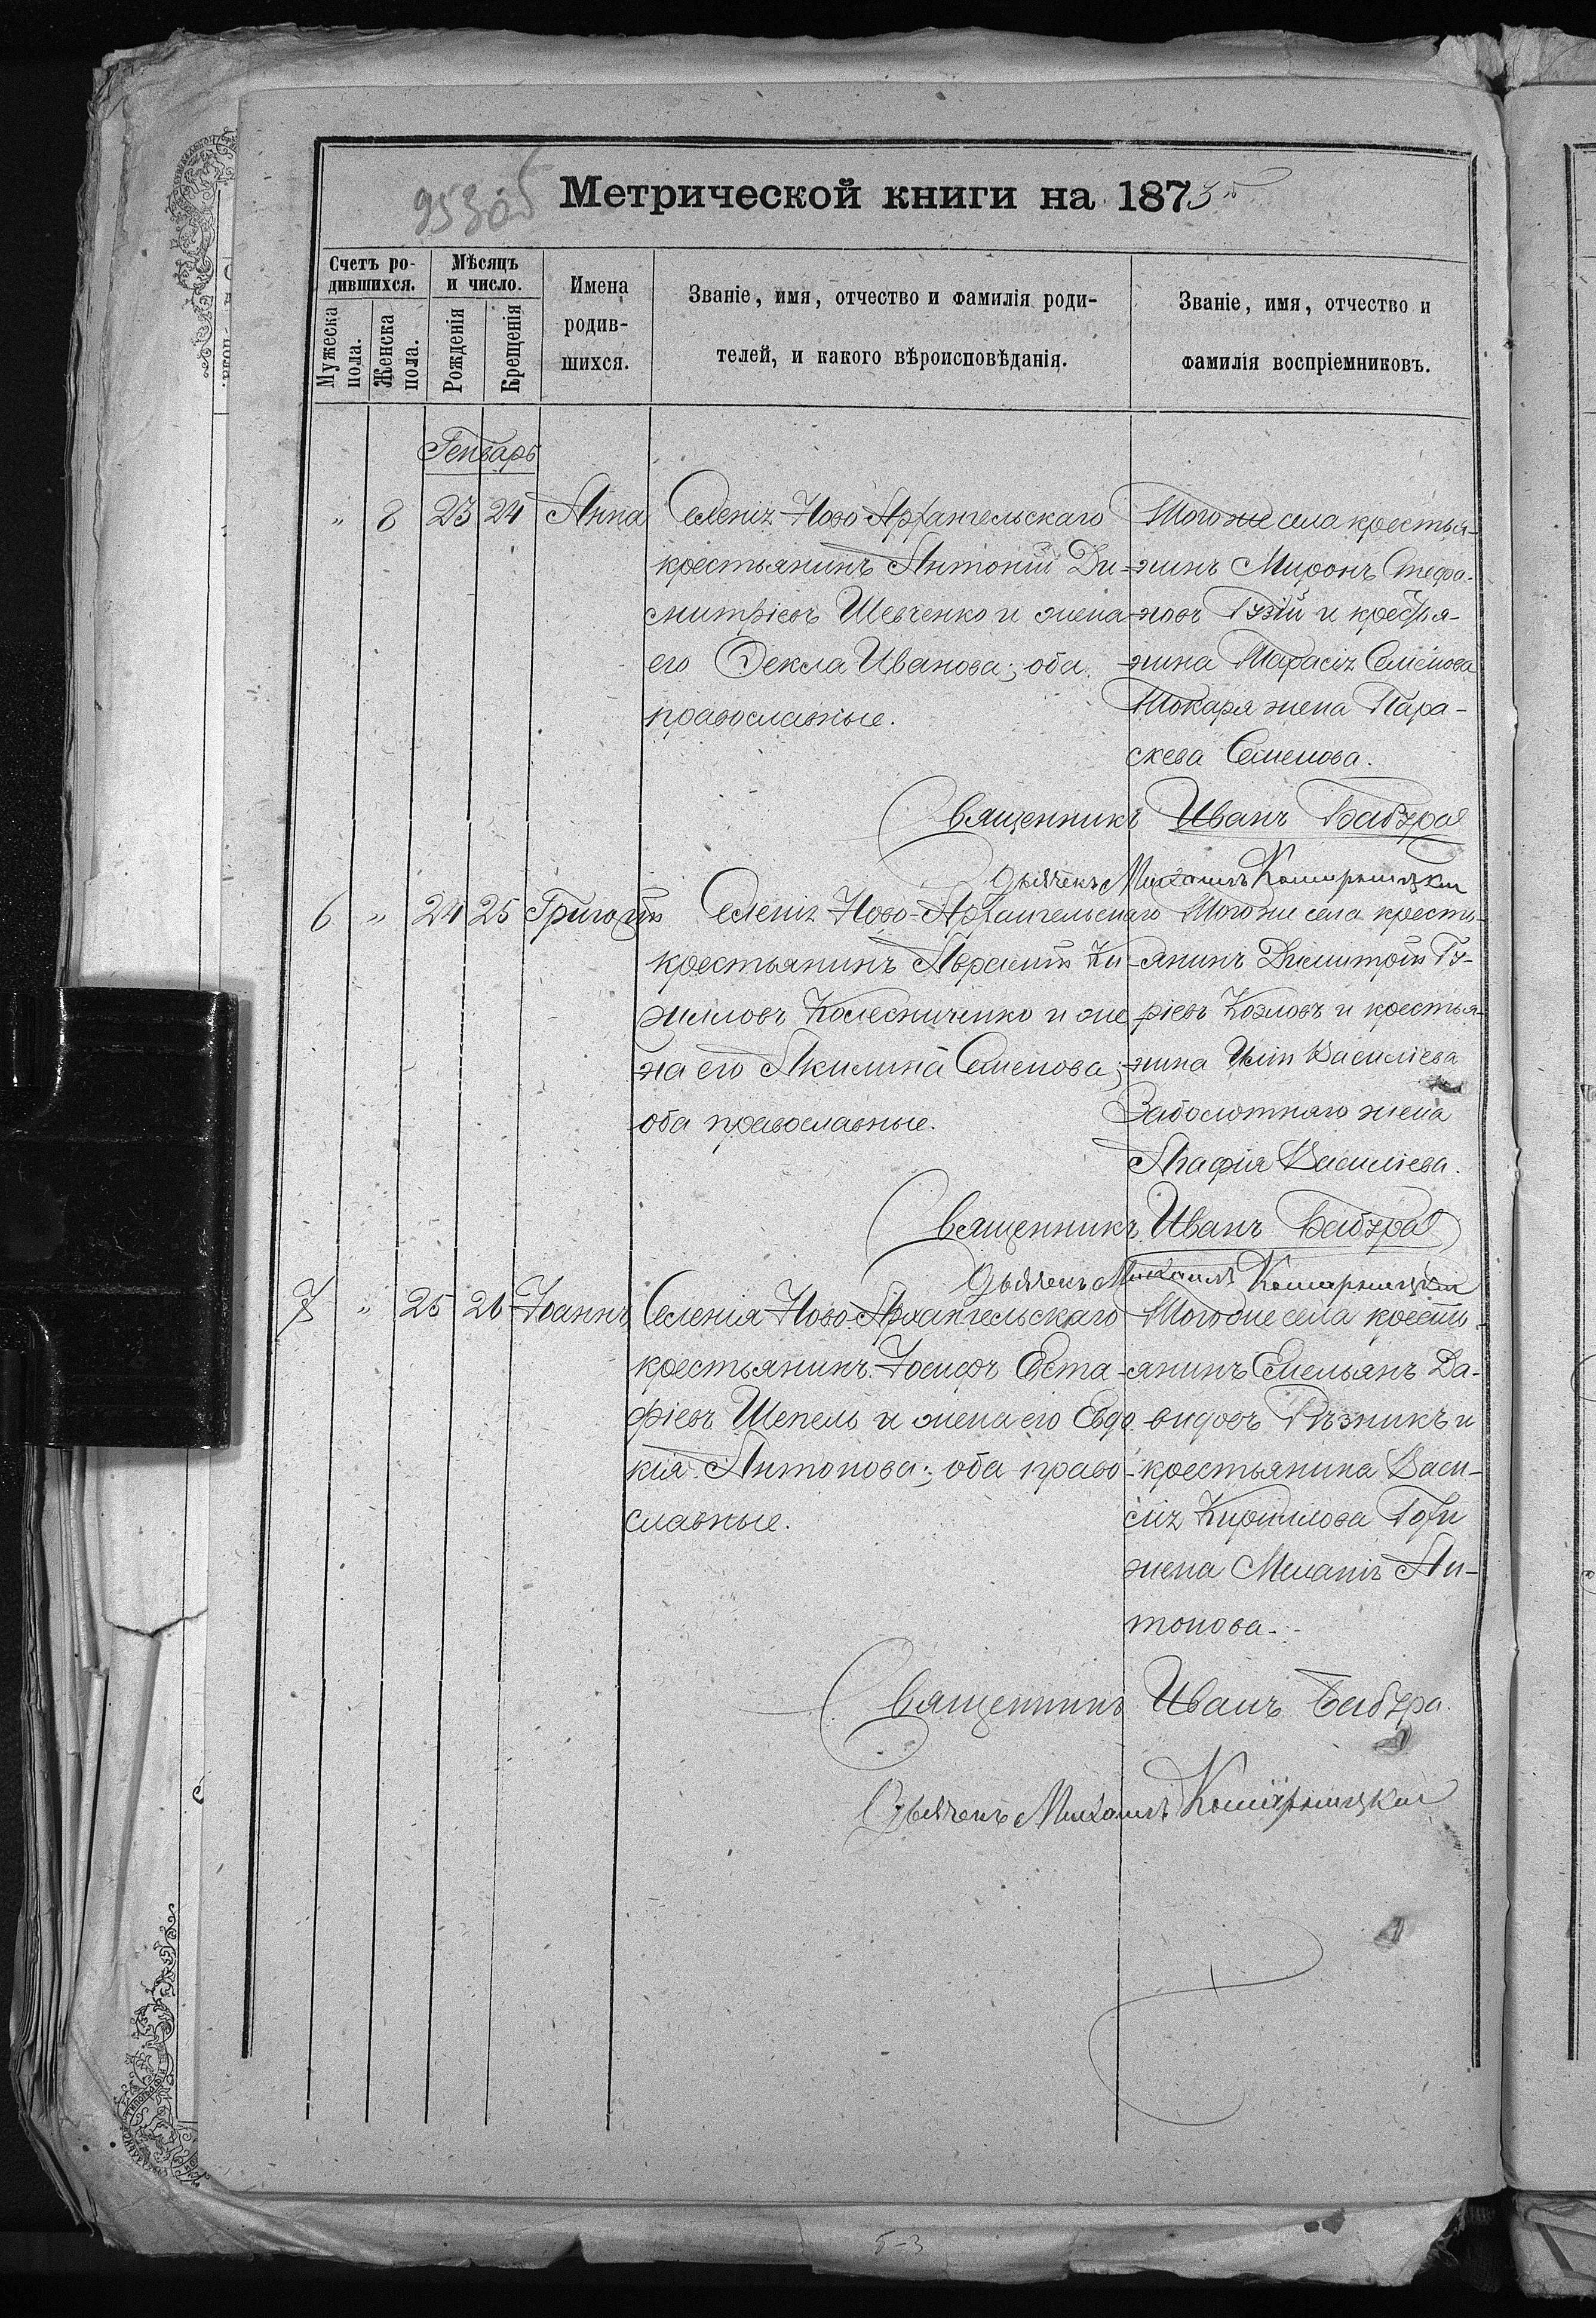 953об
Метрической книги на 1873й
Счетъ ро-
дившихся.
Мужеска
пола.
Женска
пола.
Мѣсяцъ
и число.
Рожденія
Крещенія
Имена
родив-
шихся.
Званіе, имя, отчество и фамилія роди-
телей, и какого вѣроисповѣданія.
Званіе, имя, отчество и
фамилія воспріемниковъ.
Генварь
" 8 23 24 Анна
Селенія Ново Архангельскаго
крестьянинъ Антоній Ди-
митріевъ Шевченко и жена
его Ѳекла Иванова; оба
православные.
Тогоже села крестья-
нинъ Миронъ Стефа-
новъ и крестья-
нина Тарасія Семенова
Токаря жена Пара-
скева Семенова.
Священникъ Иванъ Бабура
Дьячекъ Михаилъ
6 " 24 25 Григорій
Селенія Ново-Архангельскаго
крестьянинъ Аврамій
Колесниченко и же
на его Акилина Семенова;
оба православные.
Тогоже села кресть-
янинъ Димитрій Гу-
ріевъ Козловъ и крестья-
нина Иліи Василіева
Заболотнаго жена
Агафія Василіева.
Священникъ Иванъ Бабура
Дьячекъ Михаилъ
7 " 25 26 Іоаннъ
Селенія Ново-Архангельскаго
крестьянинъ Іосифъ Евста-
фіевъ Шепель и жена его Евдо
кія Антонова; оба право-
славные.
Тогоже села кресть-
янинъ Емельянъ Да-
видовъ Рѣзникъ и
крестьянина Васи-
лія Кирилова
жена Меланія Ан-
тонова.
Священникъ Иванъ Бабура.
Дьячекъ Михаилъ
5-3